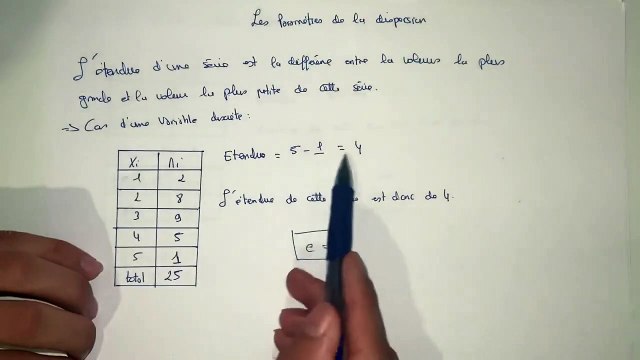 Les Paramètres de la dispersion
L'étendue d'une série est la différence entre la valeur la plus
grande et la valeur la plus petite de cette série.
=> Cas d'une variable discrète :
Xi ni
1 2
2 8
3 9
4 5
5 1
total 25
Etendue = 5 - 1 = 4
L'étendue de cette est donc de 4.
e =